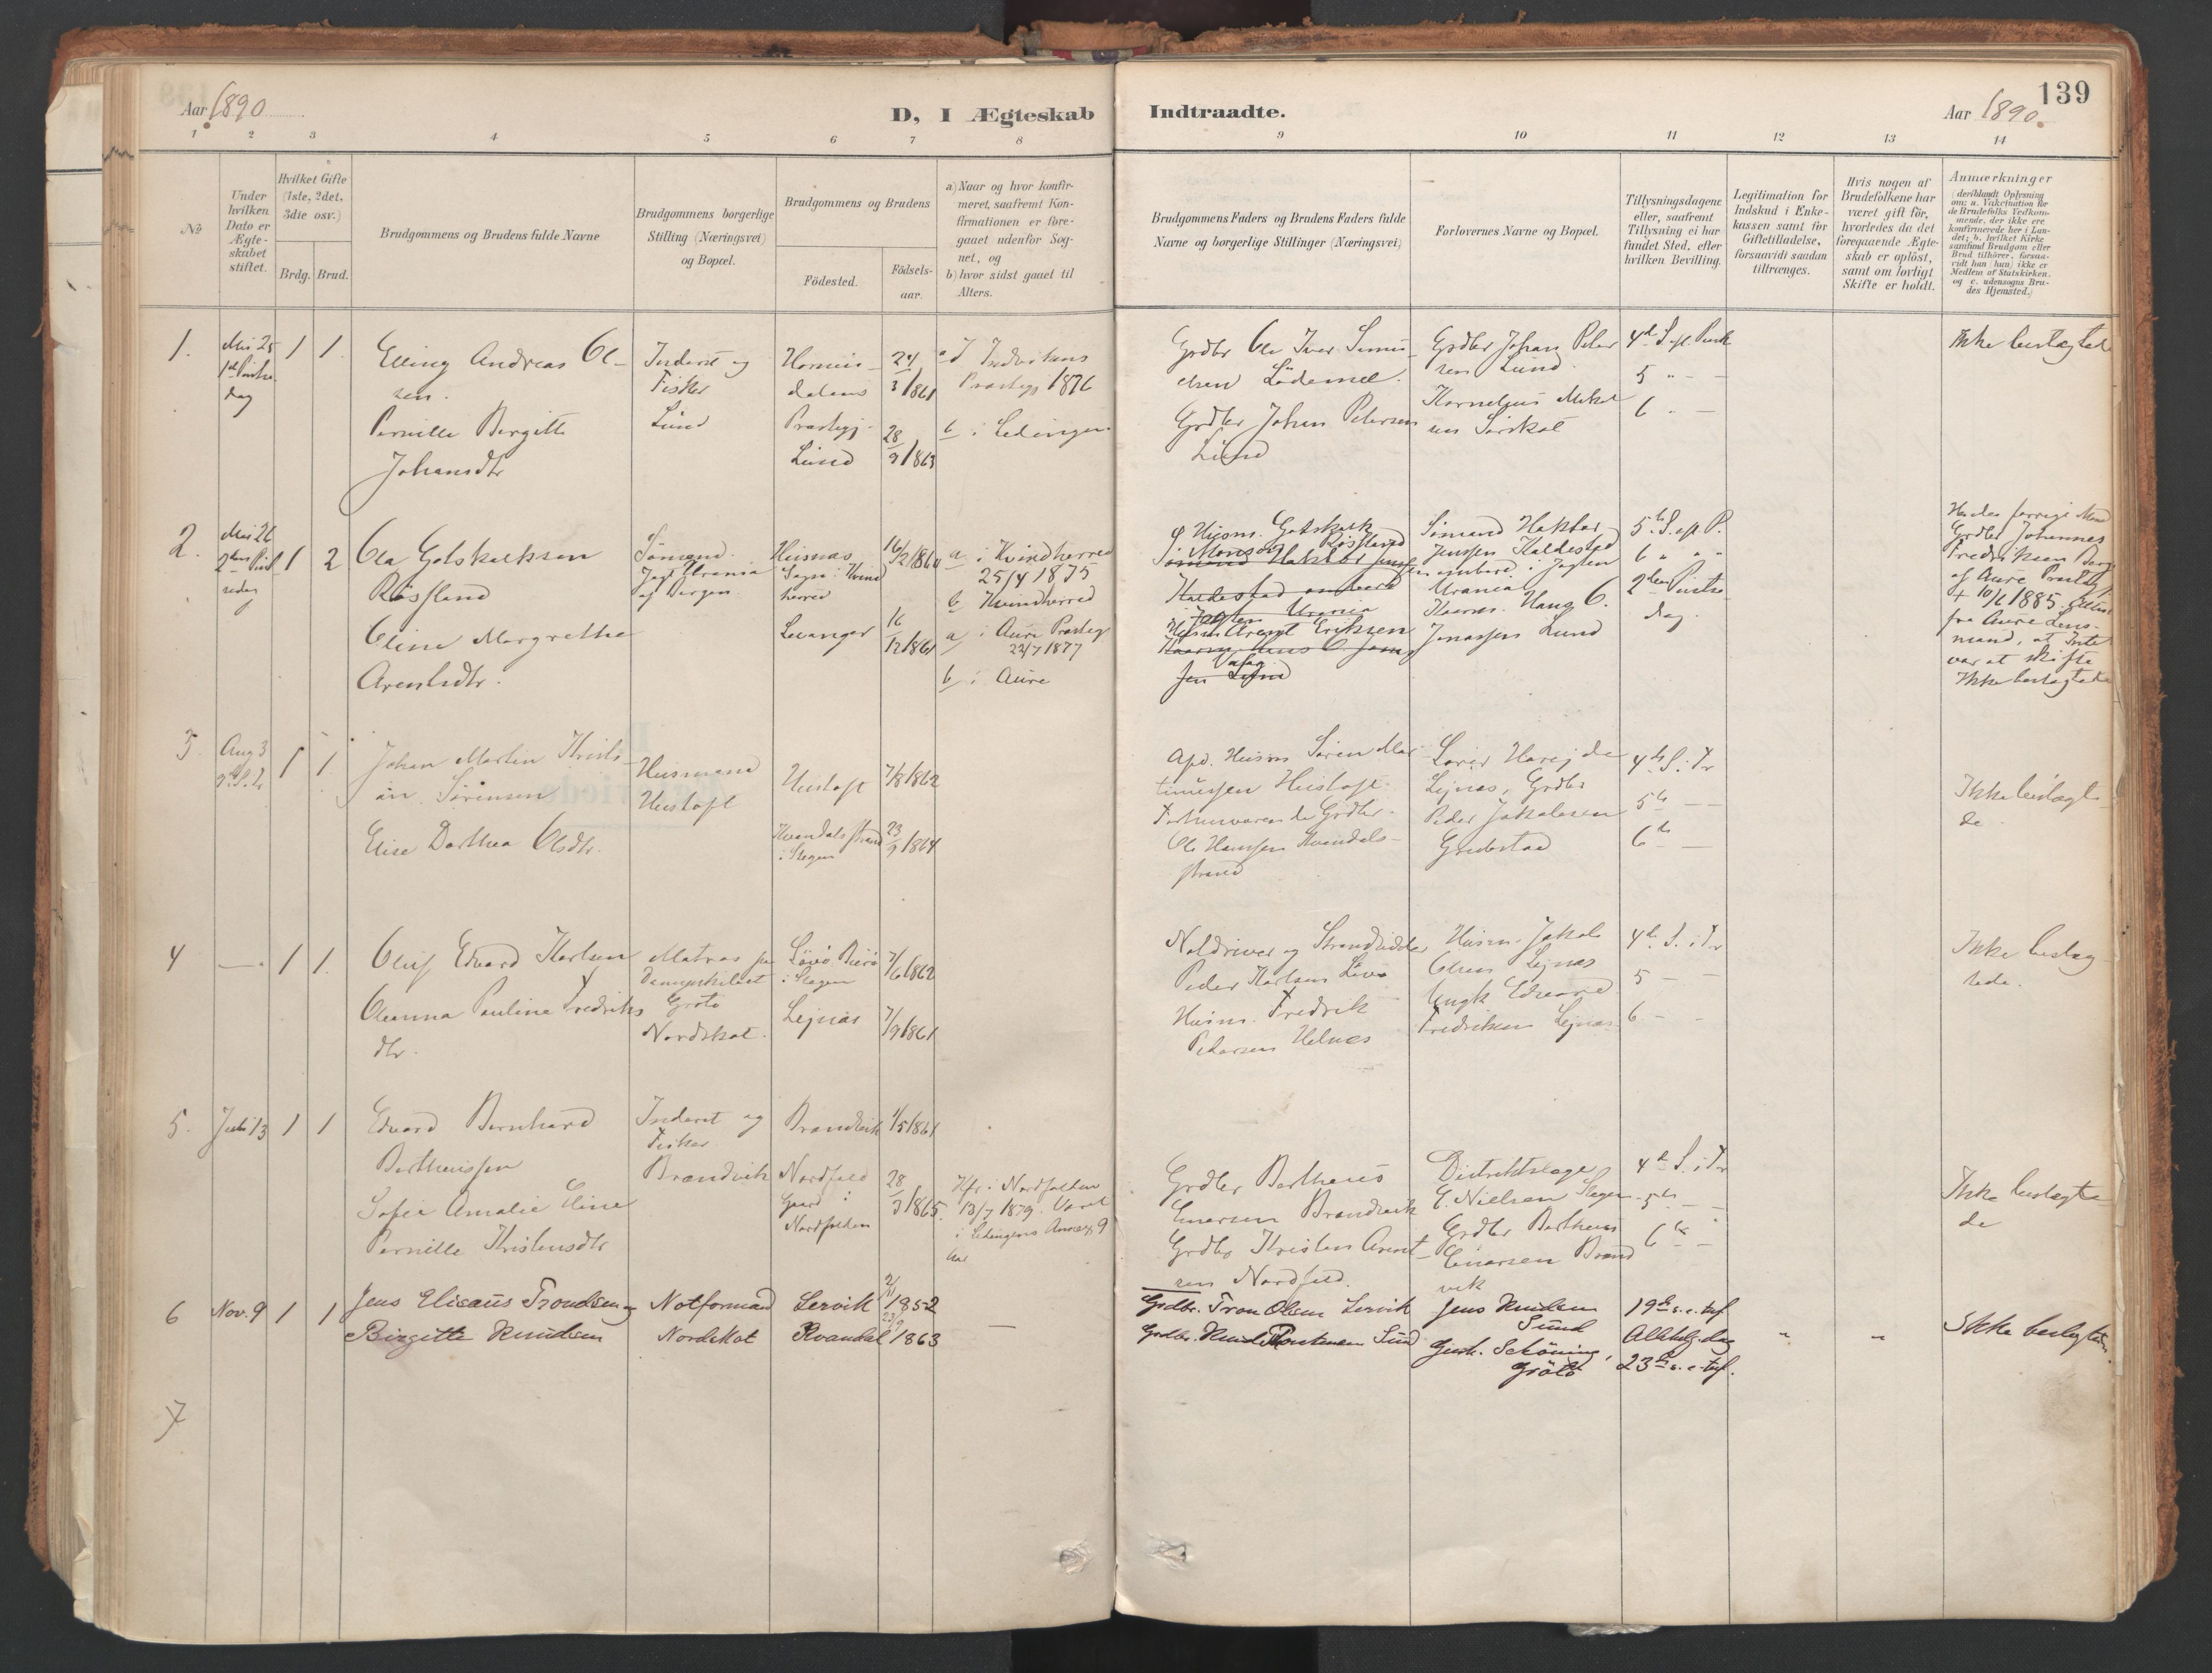 139
Aar 1890
D, I Ægteskab
Indtraadte.
Aar 1890.
1 2 3 4 5 6 7 8 9 10 11 12 13 14
No
Under
hvilken
Dato er
Ægte-
skabet
stiftet.
Hvilket Gifte
(1ste, 2det,
3die osv.)
Brdg. Brud.
Brudgommens og Brudens fulde Navne
Brudgommens borgerlige
Stilling (Næringsvei)
og Bopæl.
Brudgommens og Brudens
Fødested.
Fødsels-
aar.
a) Naar og hvor konfir-
meret, saafremt Kon-
firmationen er fore-
gaaet udenfor Sog-
net, og
b) hvor sidst gaaet til
Alters.
Brudgommens Faders og Brudens Faders fulde
Navne og borgerlige Stillinger (Næringsvei)
Forlovernes Navne og Bopæl.
Tillysningsdagene
eller, saafremt
Tillysning ei har
fundet Sted, efter
hvilken Bevilling.
Legitimation for
Indskud i Enke-
kassen samt for
Giftetilladelse,
forsaavidt saadan
tiltrænges.
Hvis nogen af
Brudefolkene har
været gift før,
hvorledes da det
foregaaende Ægte-
skab er opløst,
samt om lovligt
Skifte er holdt.
Anmærkninger
(deriblandt Oplysning
om: a. Vakcination for
de Brudefolks Vedkom-
mende, der ikke ere
konfirmerede her i Lan-
det; b. hvilket Kirke-
samfund Brudgom eller
Brud tilhører, forsaa-
vidt han (hun) ikke er
Medlem af Statskirken,
og c. udensogns Bru-
des Hjemsted.)
1.
Mai 25
1ste Pintse
dag
1 1.
Elling Andreas Ol-
sen.
Pernille Bergitte
Johansdtr
Inderst og
Fisker
Lund
Hornin-
dalens
Præstegj.
Lund
24/3 1861
28/9 1863
a I Indvikens
Præstegj 1876
b i Lødingen
Grdbr Ole Iver Simon-
elsen Lødemel.
Grdbr Johan Petersen
Lund
Grdbr Johan Peter
sen Lund.
Kornelius Mikal
sen Sørskot
4de S. ef. Pask
5 " —
6 " —
Ikke beslægtede
2.
Mai 26
2den Pint
sedag
1 2
Ole Gotskalksen
Røsfland
Oline Margrethe
Arentsdtr.
Sømand.
Jagt Urania
af Bergen
Husnæs
Sogn i Kvind
herred
Levanger
16/2 1864
16/12 1861
a i Kvindherred
25/4 1875
b Kvindherred
a i Aure Præstegj
22/7 1877
b i Aure
Husm. Gotskalk
Monsen Røsfland
Sømand Haktor Jenssen
Haldestad ombord
i Jagten Urania
Husm Arent Eriksen
Sømand Haktor
Jenssen Haldestad
ombord i Jagten
Urania
Kaarm. Haug O.
Jonassen Lund
5te S. ef. P.
6 " " "
2den Pintse
dag.
Hendes forrige Mand
Grdbr Johannes
Fredriksen Berg
af Aure Præstegj
+ 10/6 1885. Attest
fra Aure Lens-
mand, at Intet
var at skifte
Ikke beslægtede
3.
Aug 3
9. S. Tr
1 1.
Johan Martin Kristi-
an Sørensen
Elise Dorthea Olsdtr.
Husmand
Hustoft
Hustoft
Kvandalsstrand
i Stegen
7/8 1862
23/9 1864
Apd. Husm Søren Mar
tinussen Hustoft.
Forhenværende Grdbr.
Ole Hansen Kvandals-
strand
Lejnæs, Grdbr
Peder Jakobsen
Grindstad
4de S. i Tr
5te — —
6te —
Ikke beslægte-
de.
4
—
1 1.
Oluf Edvard Karlsen
Oleanna Pauline Fredriks
dtr.
Matros på
Dampskibet
Grøtø
Nordskot.
Løvø
i Stegen
Lejnæs
7/6 1862
7/9 1861
Notdriver og Strandsidder
Peder Karlsen Løvø
Husm. Fredrik
Petersen Helnes
Husm. Jakob
Olsen Lejnæs
Ungk Edvard
Fredriksen Lejnæs
4de S. i Tr
5 —
6 — -
Ikke beslæg-
tede.
5.
Juli 13
1 1
Edvard Bernhard
Bertheussen
Sofie Amalie Eline
Pernille Kristensdtr
Inderst og
Fisker
Brandvik
Brandvik
Nordfeld
Gaard i
Nordfolden
1/5 1861
28/9 1865.
Kfr. i Nordfolden
13/7 1879. Været
i Lødingens Annex 9
Aar
Grdbr Bertheus
Einersen Brandvik
Grdbr Kristen Arent-
sen Nordfeld.
Distriktslæge
E. Nielsen Stegen
Grdbr Bertheus
Einarsen Brand
vik
4de S. i Tr
5te — —
6te —
Ikke beslægte-
de
6
Nov. 9
1 1
Jens Elisæus Trondsen og
Birgitte Knudsen
Notformand
Nordskot
Lervik
Kvandal
2/11 1852
23/9 1863
—
Grdbr. Tron Olsen Lervik
Grdbr. Knud Sund
Jens Knudsen
Sund
Gerh. Schöning,
Grøtø
19de s. e. tref.
Allehelg. dag
23de s. e. tref.
" "
Ikke beslægtede.
7